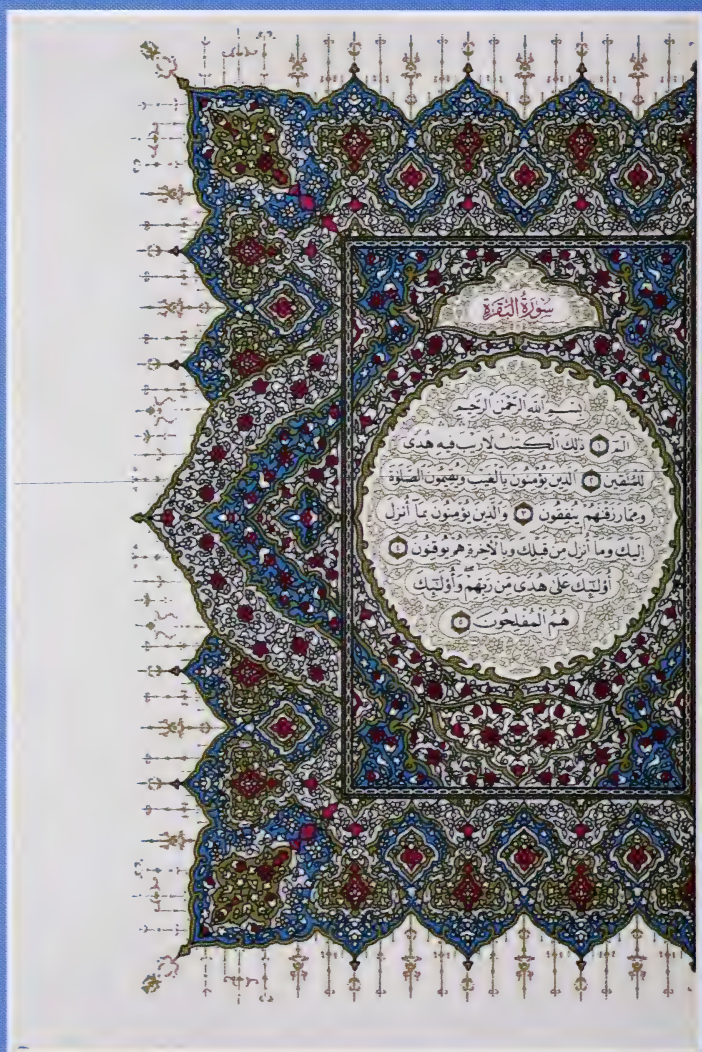 سُورَةُ الْبَقَرَةِ
بِسْمِ اللَّهِ الرَّحْمَنِ الرَّحِيمِ
الٓمٓ ١ ذَٰلِكَ الْكِتَٰبُ لَا رَيْبَ فِيهِ هُدًى
لِلْمُتَّقِينَ ٢ الَّذِينَ يُؤْمِنُونَ بِالْغَيْبِ وَيُقِيمُونَ الصَّلَوٰةَ
وَمِمَّا رَزَقْنَٰهُمْ يُنفِقُونَ ٣ وَالَّذِينَ يُؤْمِنُونَ بِمَا أُنزِلَ
إِلَيْكَ وَمَا أُنزِلَ مِن قَبْلِكَ وَبِالْآخِرَةِ هُمْ يُوقِنُونَ ٤
أُولَٰئِكَ عَلَىٰ هُدًى مِّن رَّبِّهِمْ وَأُولَٰئِكَ
هُمُ الْمُفْلِحُونَ ٥